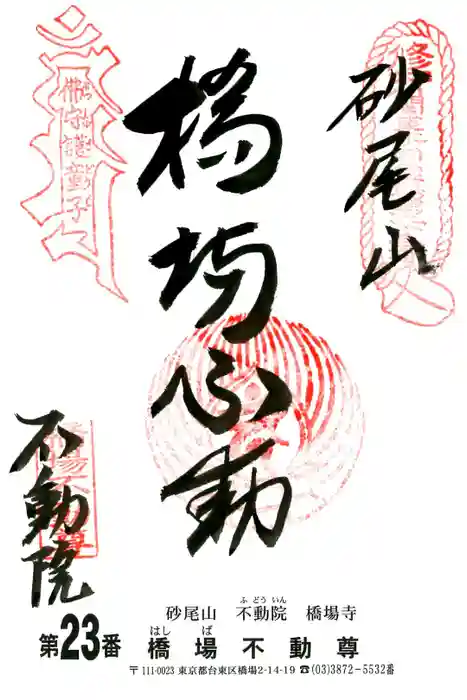 砂尾山
橋場不動
不動院
砂尾山 不動院 橋場寺
ふどういん
第23番 橋場不動尊
はしば
〒111-0023 東京都台東区橋場2-14-19 ☎(03)3872-5532番